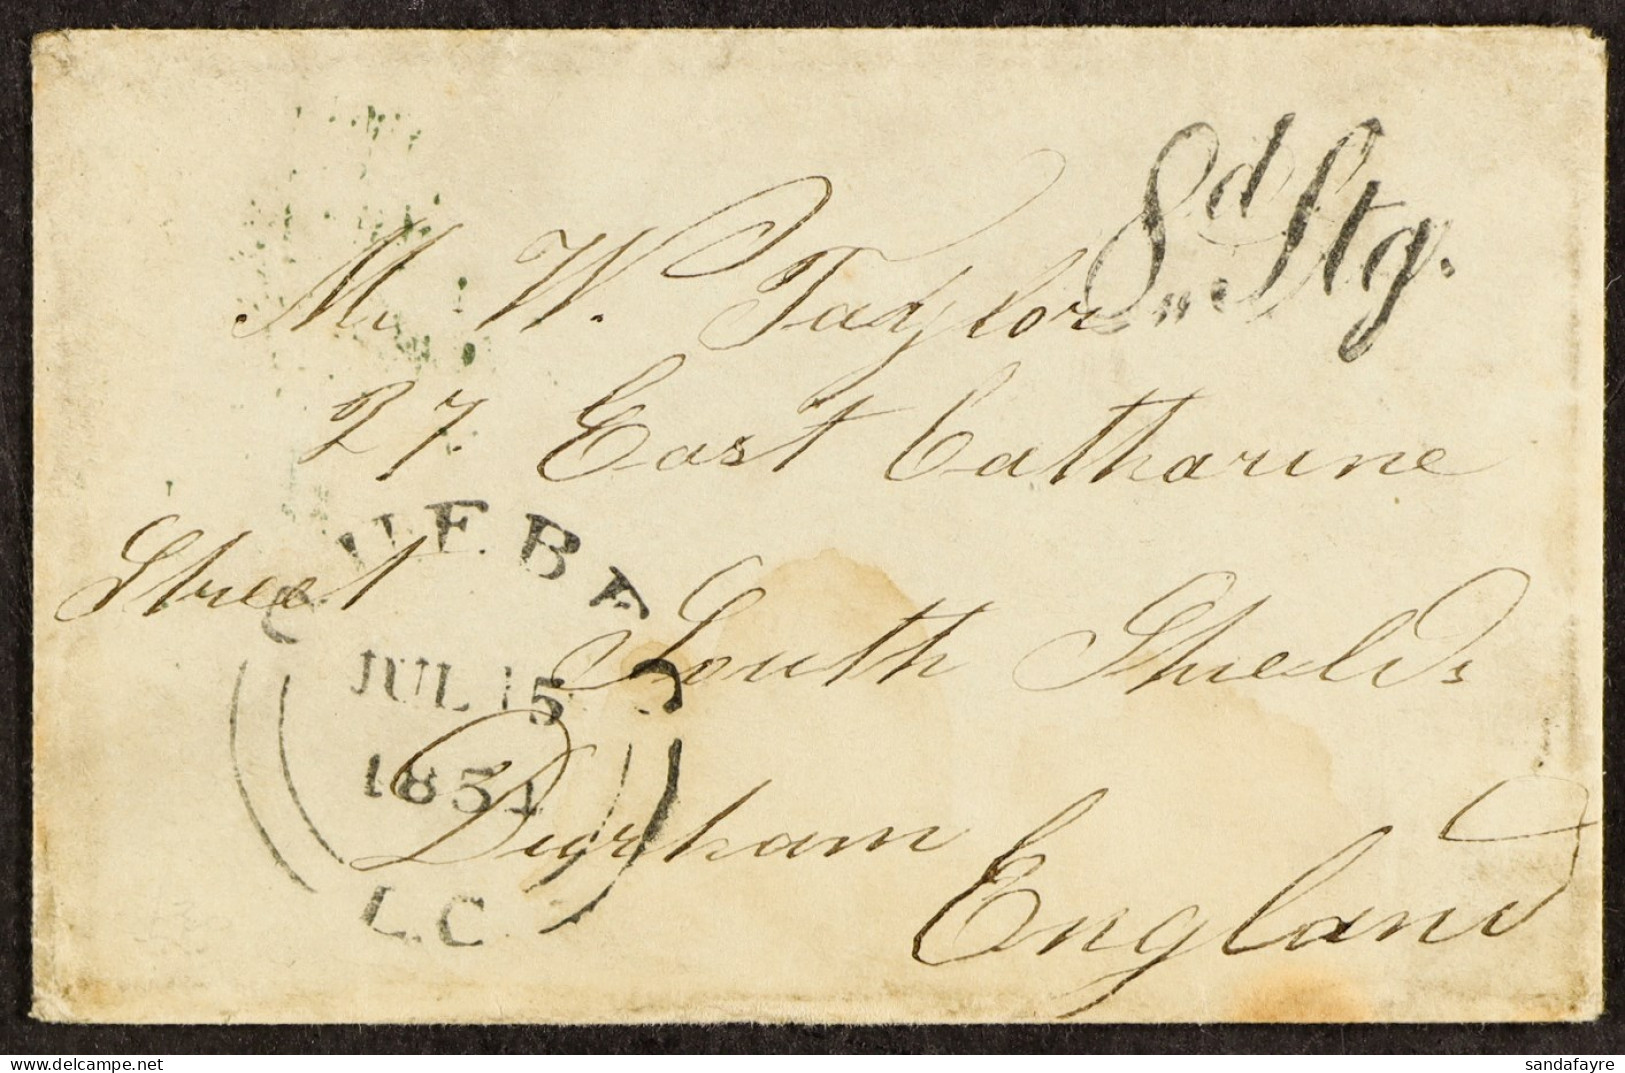 8d Stg.
Mr W. Taylor
27 East Catharine
Street South Shields
Durham
England
QUEBEC
JUL 15
1854
L.C.
sandafayre